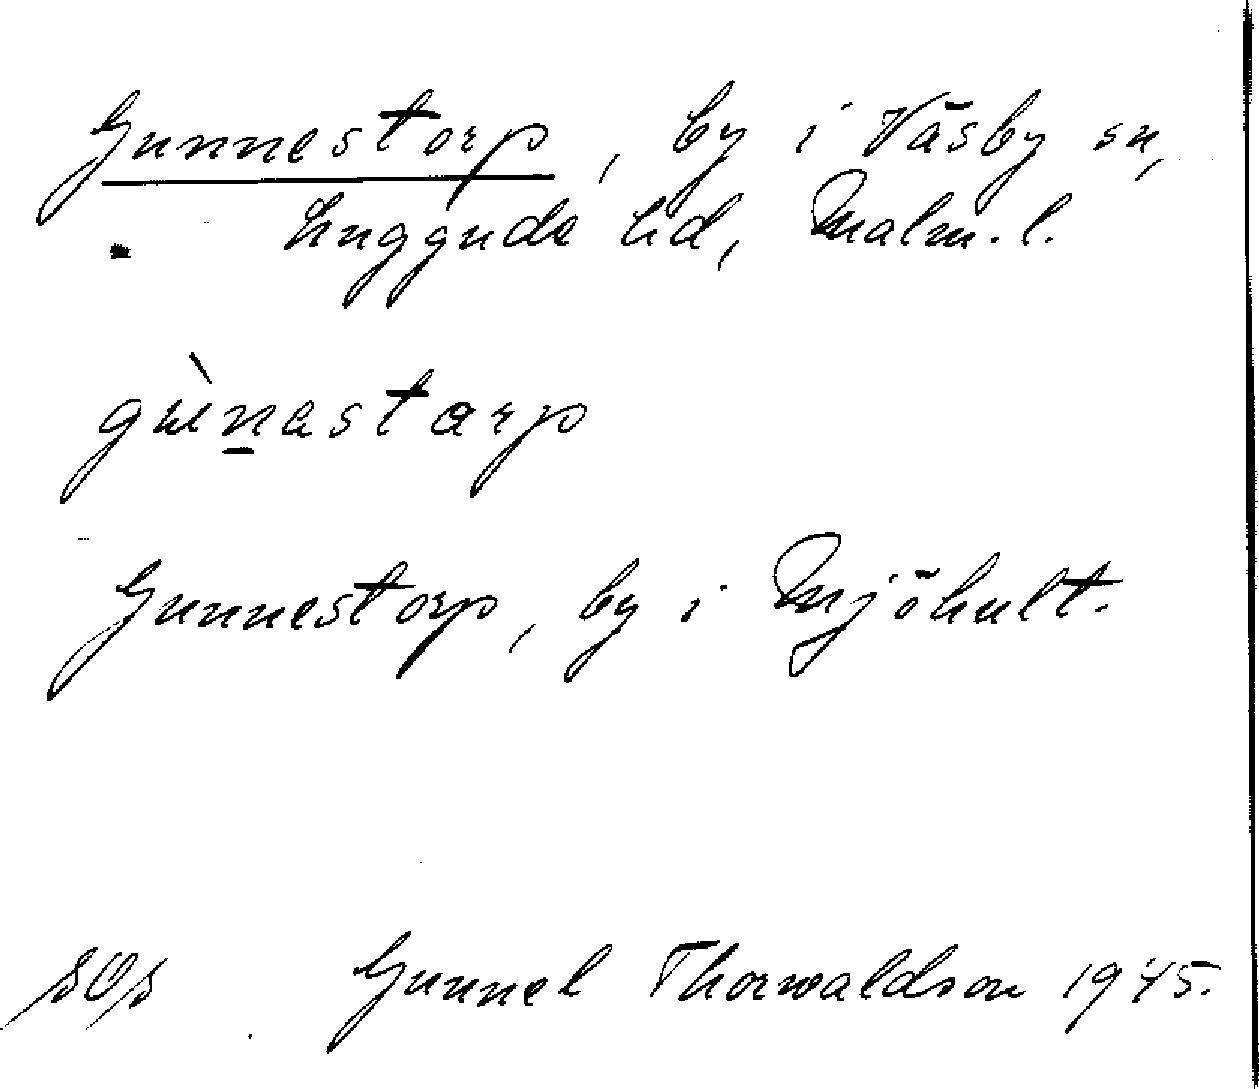 Gunnestorp, by i Väsby sn,
Luggude hd, Malm. l.
gùnastarp
Gunnestorp, by i Mjöhult.
Gunnel Thorwaldson 1945.